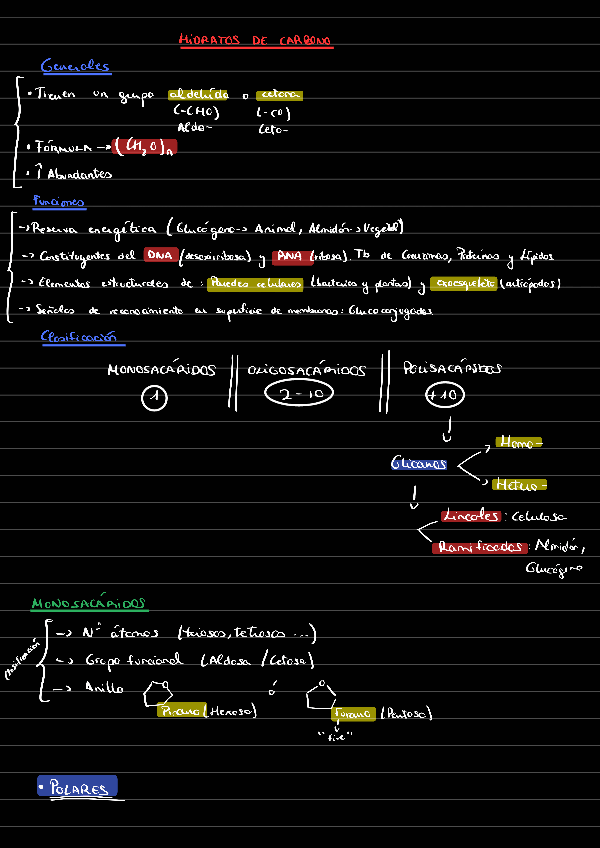 HIDRATOS DE CARBONO
Generales
• Tienen un grupo aldehído o cetona
(-CHO) (-CO)
Aldo- Ceto-
• FÓRMULA → (CH2O)n
• ↑ Abundantes
Funciones
→ Reserva energética (Glucógeno → Animal, Almidón → Vegetal)
→ Constituyentes del DNA (desoxirribosa) y RNA (ribosa). Tb de Coenzimas, Proteínas y Lípidos
→ Elementos estructurales de: Paredes celulares (bacterias y plantas) y exoesqueleto (artrópodos)
→ Señales de reconocimiento en superficie de membranas: Glucoconjugados
Clasificación
MONOSACÁRIDOS OLIGOSACÁRIDOS POLISACÁRIDOS
1 2-10 +10
Homo-
Glicanos
Hetero-
Lineales: Celulosa
Ramificados: Almidón,
Glucógeno
MONOSACÁRIDOS
Clasificación
→ Nº átomos (Hexosas, tetrosas ...)
→ Grupo funcional (Aldosa / Cetosa)
→ Anillo O ó O
Pirano (Hexosa) Furano (Pentosa)
"five"
• POLARES